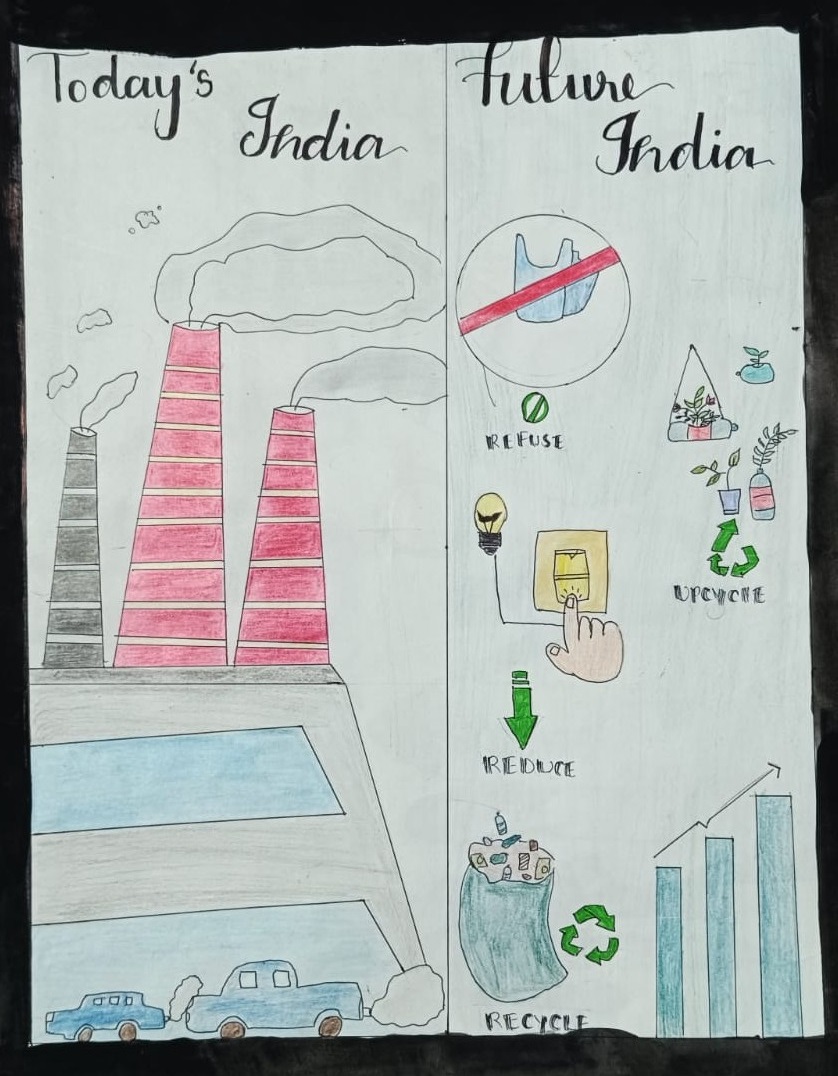 Today's
India
Future
India
REFUSE
UPCYCLE
REDUCE
RECYCLE